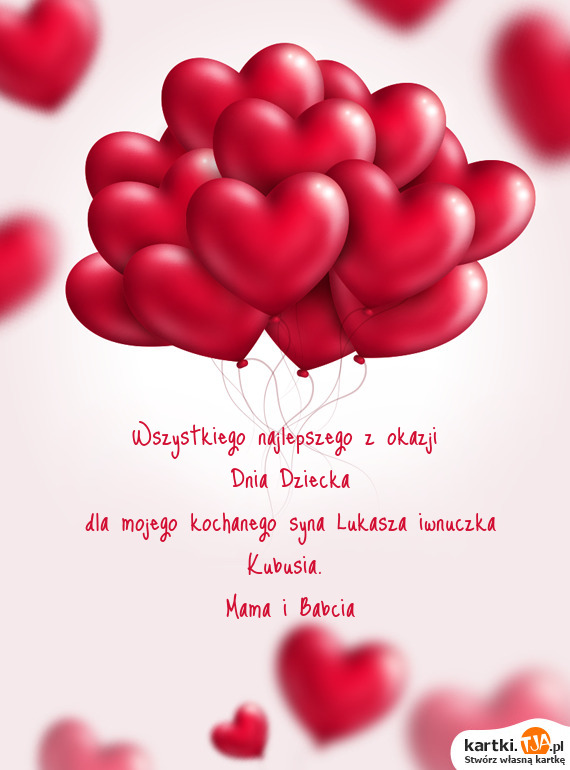 Wszystkiego najlepszego z okazji
Dnia Dziecka
dla mojego kochanego syna Lukasza iwnuczka
Kubusia.
Mama i Babcia
kartki.TJA.pl
Stwórz własną kartkę